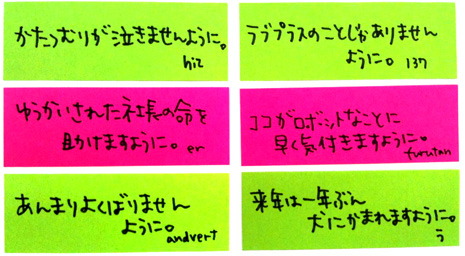 かたつむりが泣きませんように。
hiz
ラブプラスのことじゃありません
ように。 137
ゆうかいされた社長の命を
助けますように。 er
ココがロボットなことに
早く気付きますように。
furutan
あんまりよくばりません
ように。
andvert
来年は一年ぶん
犬にかまれますように。
う